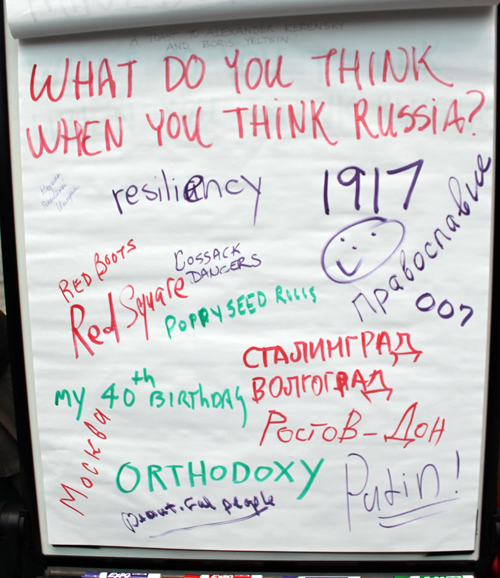 A TOAST TO ALEXANDER KERENSKY
AND BORIS YELTSIN
WHAT DO YOU THINK
WHEN YOU THINK RUSSIA?
resiliency
1917
Православие
007
RED BOOTS
COSSACK
DANCERS
Red Square
POPPY SEED ROLLS
СТАЛИНГРАД
ВОЛГОГРАД
MY 40th BIRTHDAY
Ростов-Дон
Москва
ORTHODOXY
beautiful people
Putin!